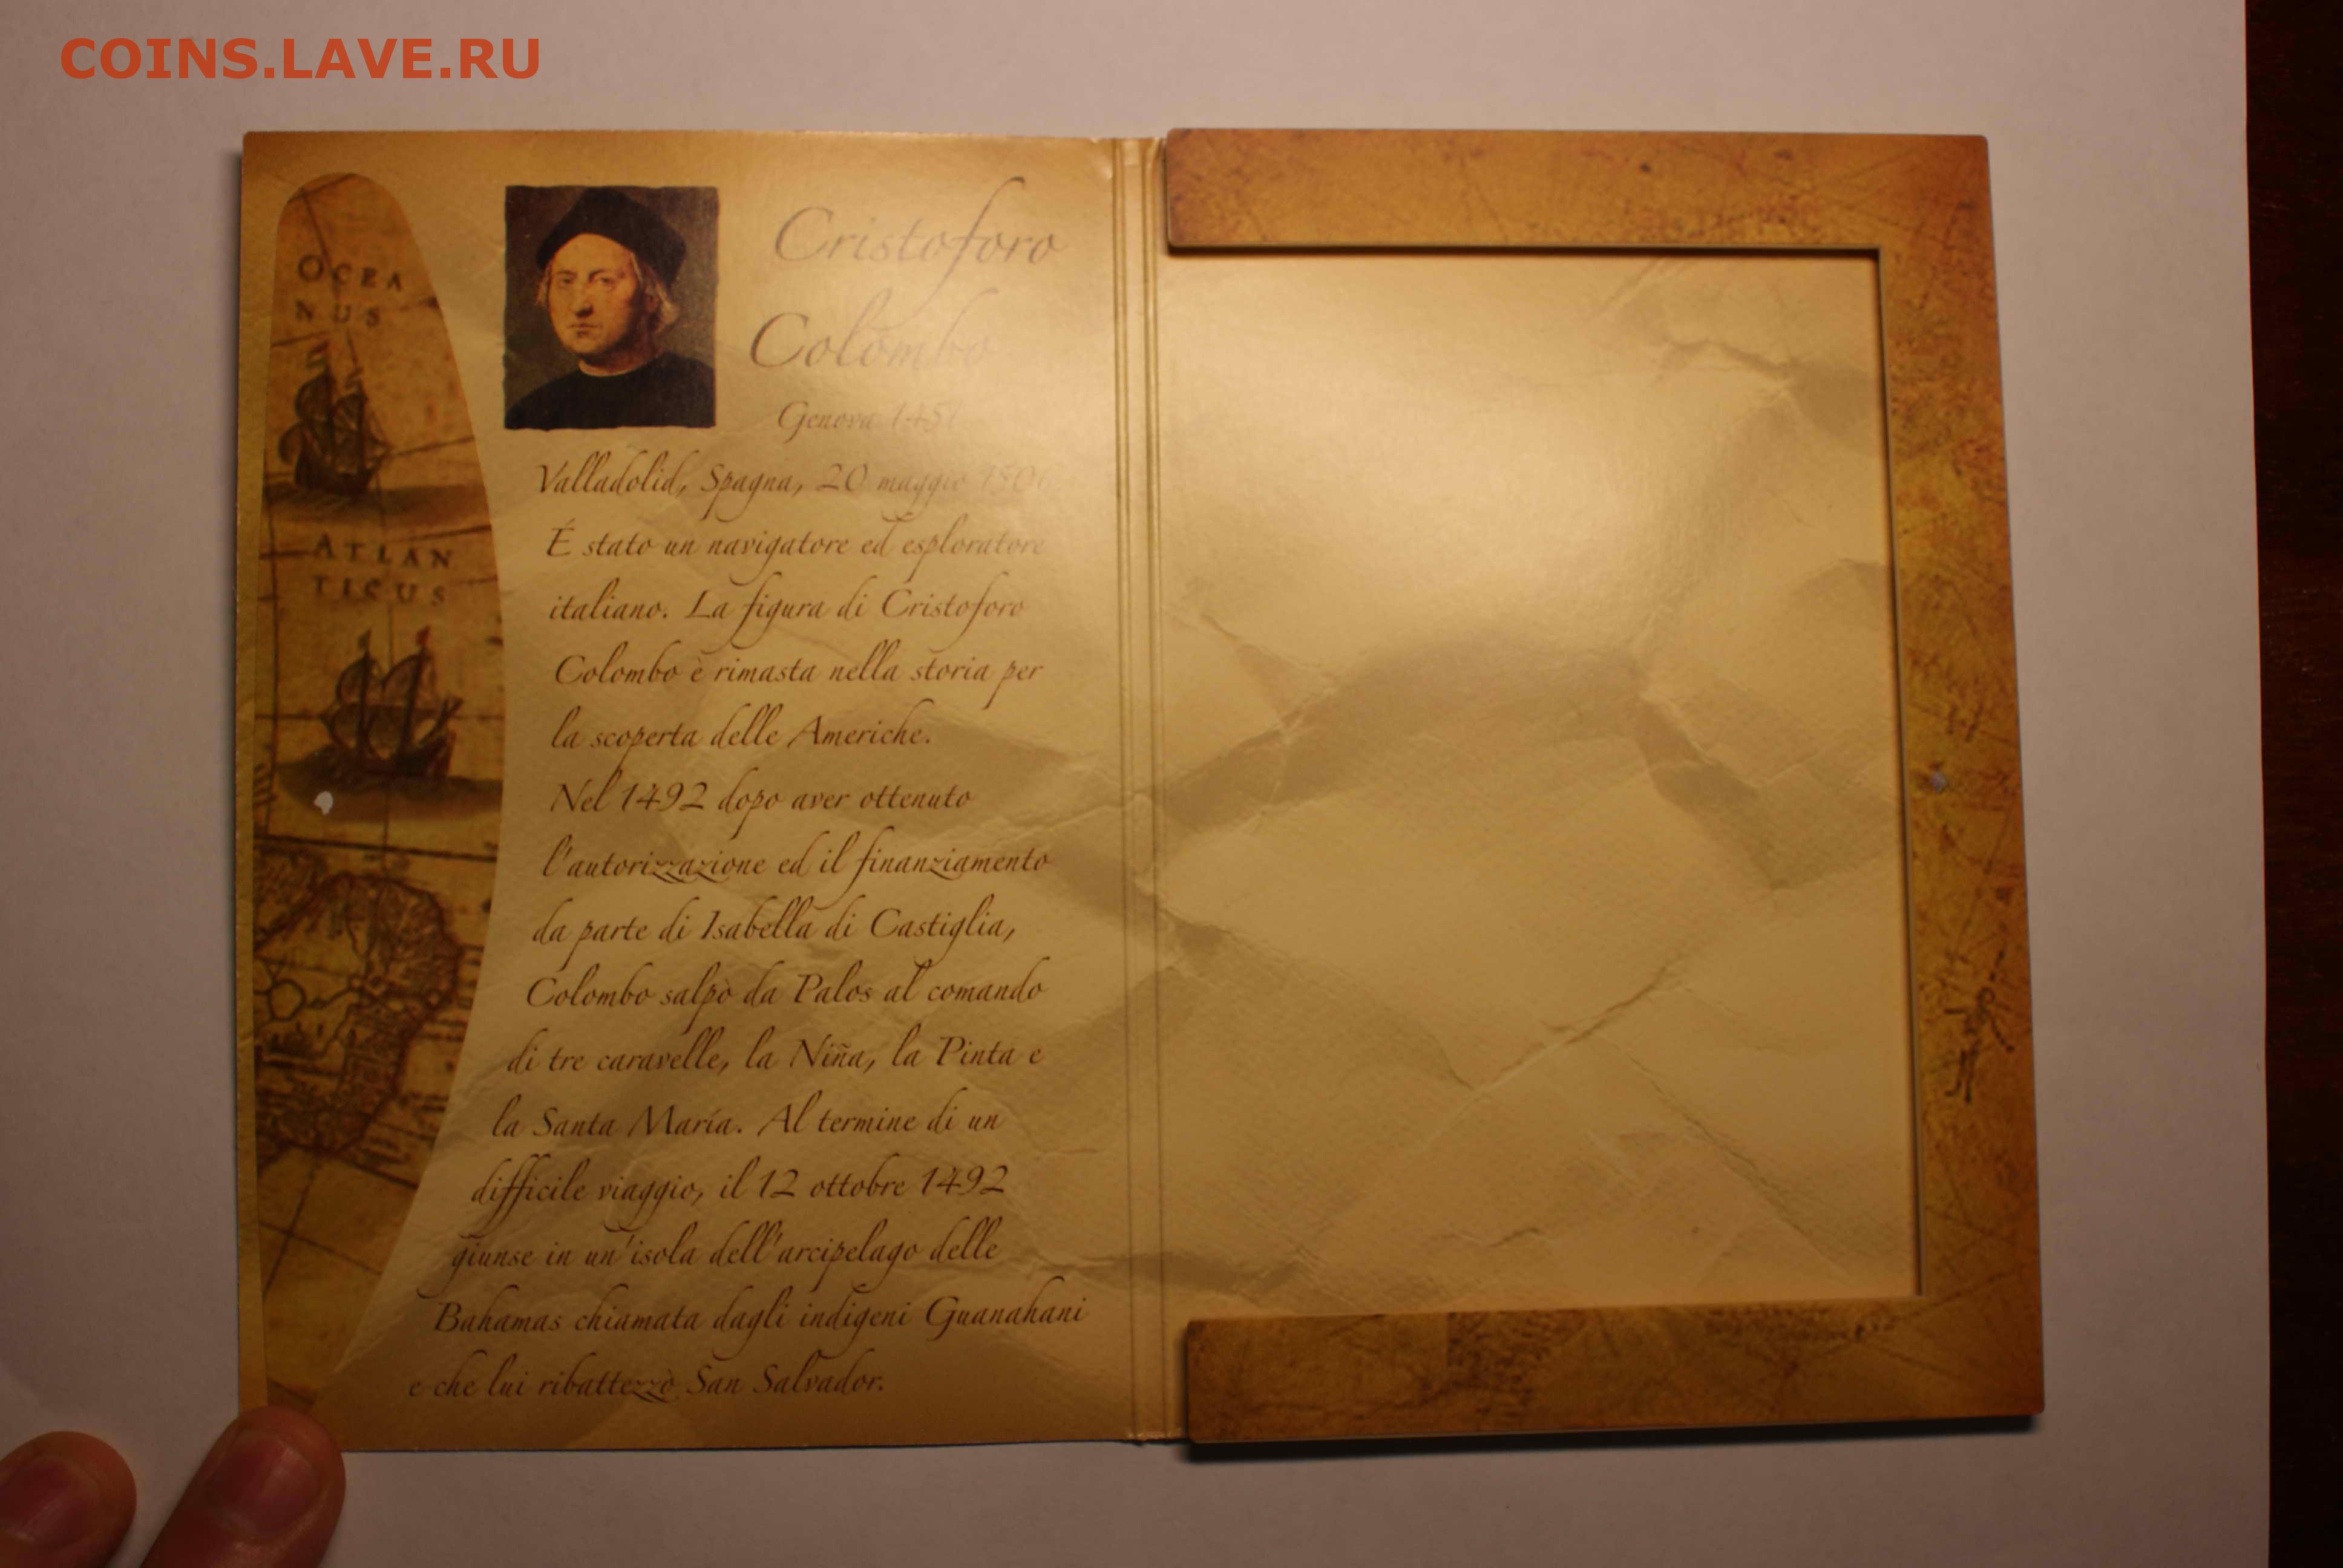 COINS.LAVE.RU
OCEA
NUS
ATLAN
TICUS
Cristoforo
Colombo
Genova 1451
Valladolid, Spagna, 20 maggio 1506
É stato un navigatore ed esploratore
italiano. La figura di Cristoforo
Colombo è rimasta nella storia per
la scoperta delle Americhe.
Nel 1492 dopo aver ottenuto
l'autorizzazione ed il finanziamento
da parte di Isabella di Castiglia,
Colombo salpò da Palos al comando
di tre caravelle, la Niña, la Pinta e
la Santa María. Al termine di un
difficile viaggio, il 12 ottobre 1492
giunse in un'isola dell'arcipelago delle
Bahamas chiamata dagli indigeni Guanahani
e che lui ribattezzò San Salvador.